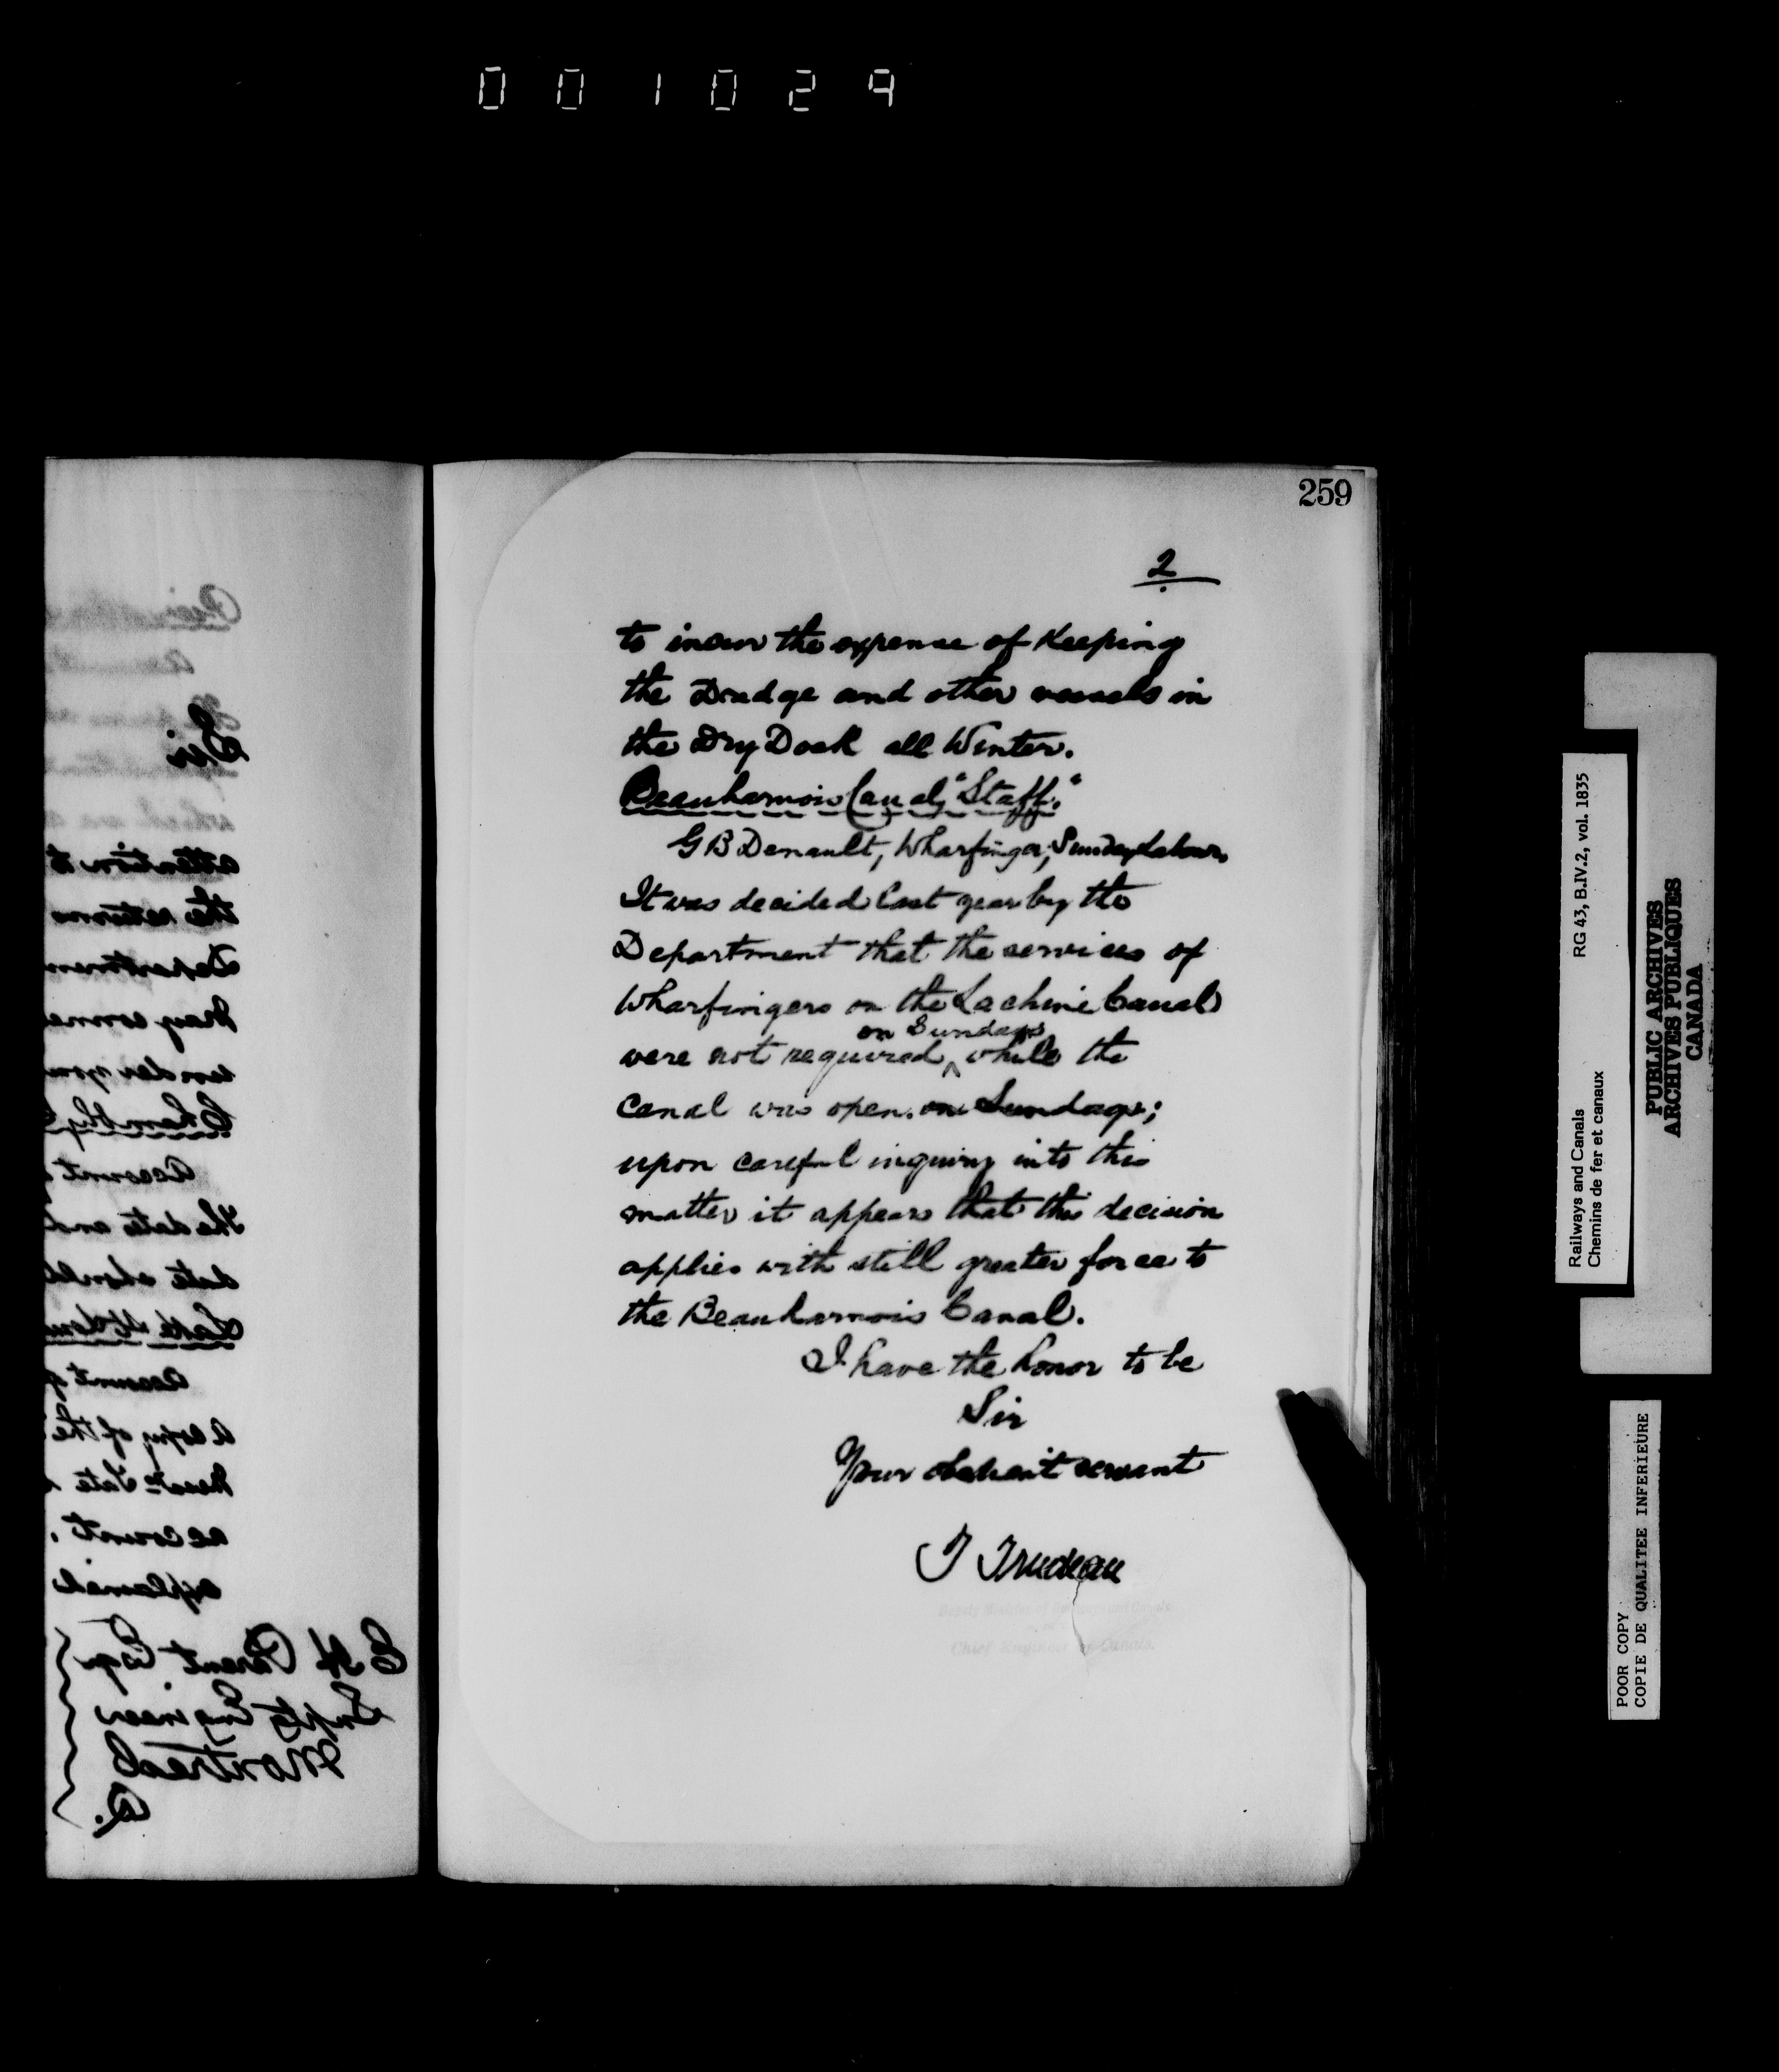 001029
259
2
to incur the expense of Keeping
the Dredge and other vessels in
the Dry Dock all Winter.
Beauharnois Canal, "Staff."
G B Denault, Wharfinger; Sunday Labour,
It was decided last year by the
Department that the services of
Wharfingers on the Lachine Canal
on Sundays
were not required ^ while the
Canal was open. on Sundays;
upon careful inquiry into this
matter it appears that this decision
applies with still greater force to
the Beauharnois Canal.
I have the honor to be
Sir
Your obedient servant
T Trudeau
Chief Engineer of Canals.
Sir
attention to
the returns
Department
may connec
under your
Chambly
Account
The date and
date should
Account
a copy of the
account,
explained
E H Parent Esqr
Supt Engineer
Montreal
Q.
Railways and Canals
Chemins de fer et canaux
RG 43, B.IV.2, vol. 1835
PUBLIC ARCHIVES
ARCHIVES PUBLIQUES
CANADA
POOR COPY
COPIE DE QUALITEE INFERIEURE